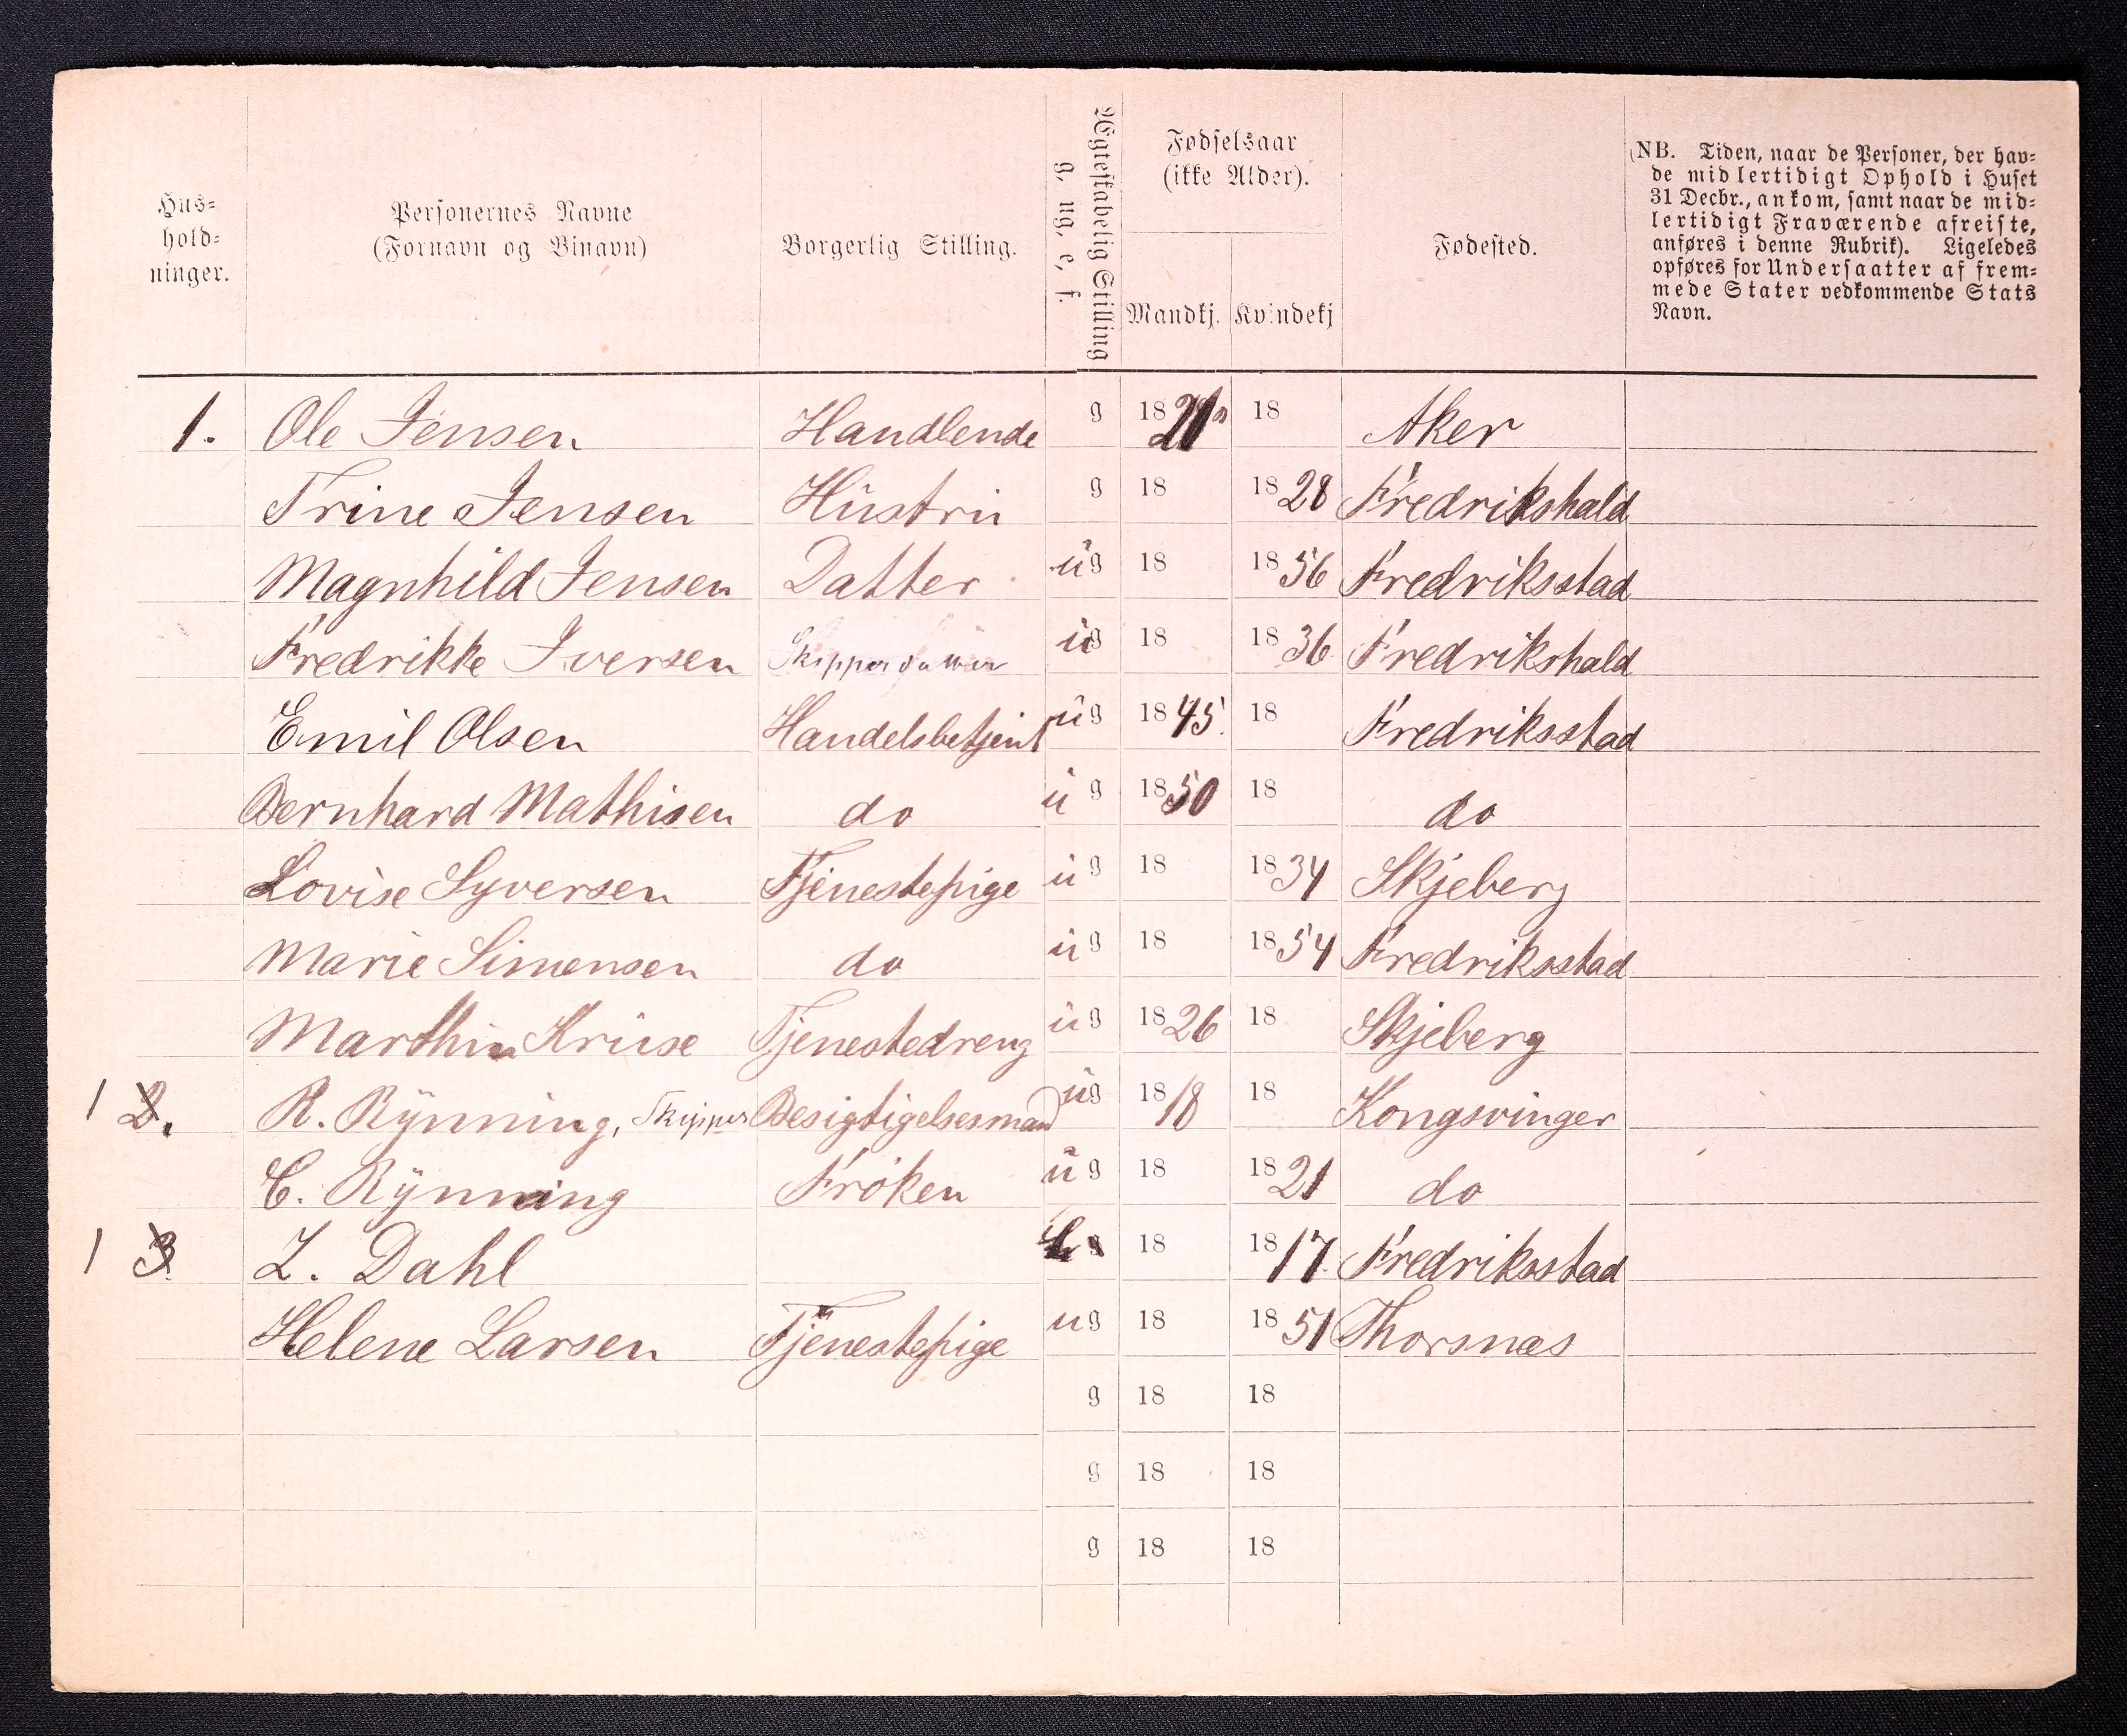 Hus-
hold-
ninger.
Personernes Navne
(Fornavn og Binavn)
Borgerlig Stilling.
Ægteskabelig Stilling
g, ug, e, f.
Fødselsaar
(ikke Alder).
Mandkj. Kvindekj
Fødested.
(NB. Tiden, naar de Personer, der hav-
de midlertidigt Ophold i Huset
31 Decbr., ankom, samt naar de mid-
lertidigt Fraværende afreiste,
anføres i denne Rubrik). Ligeledes
opføres for Undersaatter af frem-
mede Stater vedkommende Stats
Navn.
1. Ole Jensen Handlende g 18 18 Aker
Trine Jensen Hustru g 18 1828 Fredrikshald
Magnhild Jensen Datter ug 18 1856 Fredriksstad
Fredrikke Iversen Skipperdatter ug 18 1836 Fredrikshald
Emil Olsen Handelsbetjent ug 1845. 18 Fredriksstad
Bernhard Mathisen do ug 1850 18 do
Lovise Syversen Tjenestepige ug 18 1834 Skjeberg
Marie Simensen do ug 18 1854 Fredriksstad
Marthin Kruse Tjenestedreng ug 1826 18 Skjeberg
1 2. R. Rynning, Skipper Besigtigelsesmand ug 1818 18 Kongsvinger
C. Rynning Frøken ug 18 1821 do
1 3 L. Dahl 18 1817 Fredriksstad
Helene Larsen Tjenestepige ug 18 1851 Thorsnæs
g 18 18
g 18 18
g 18 18